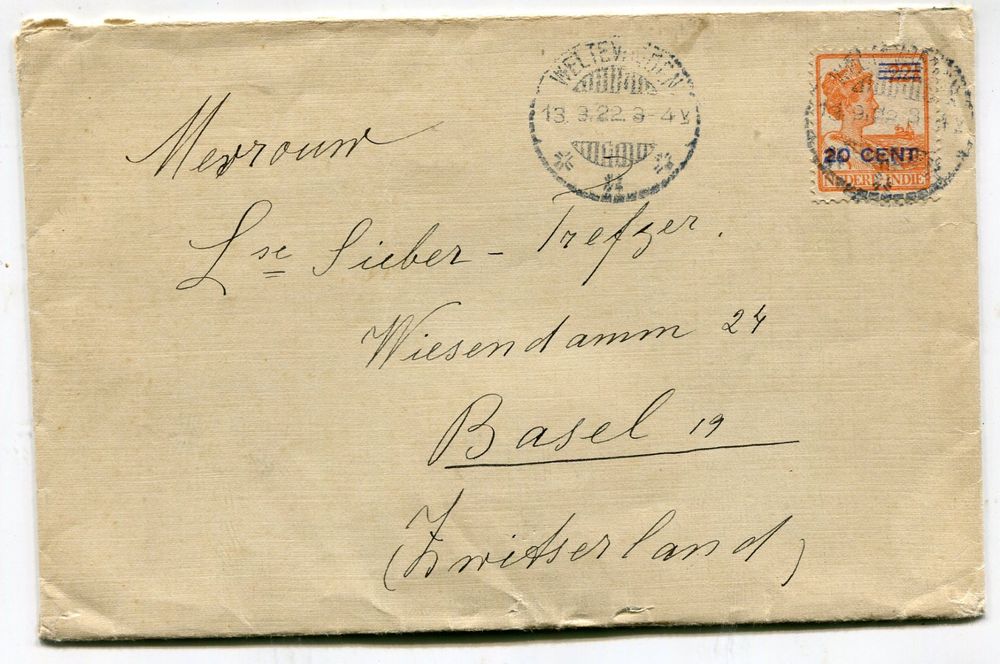 WELTEVREDEN
13.9.22.3-4V
22½
20 CENT
NEDERL.INDIE
Mevrouw
Lse Sieber - Trefzer.
Wiesendamm 24
Basel 19
(Zwitserland)